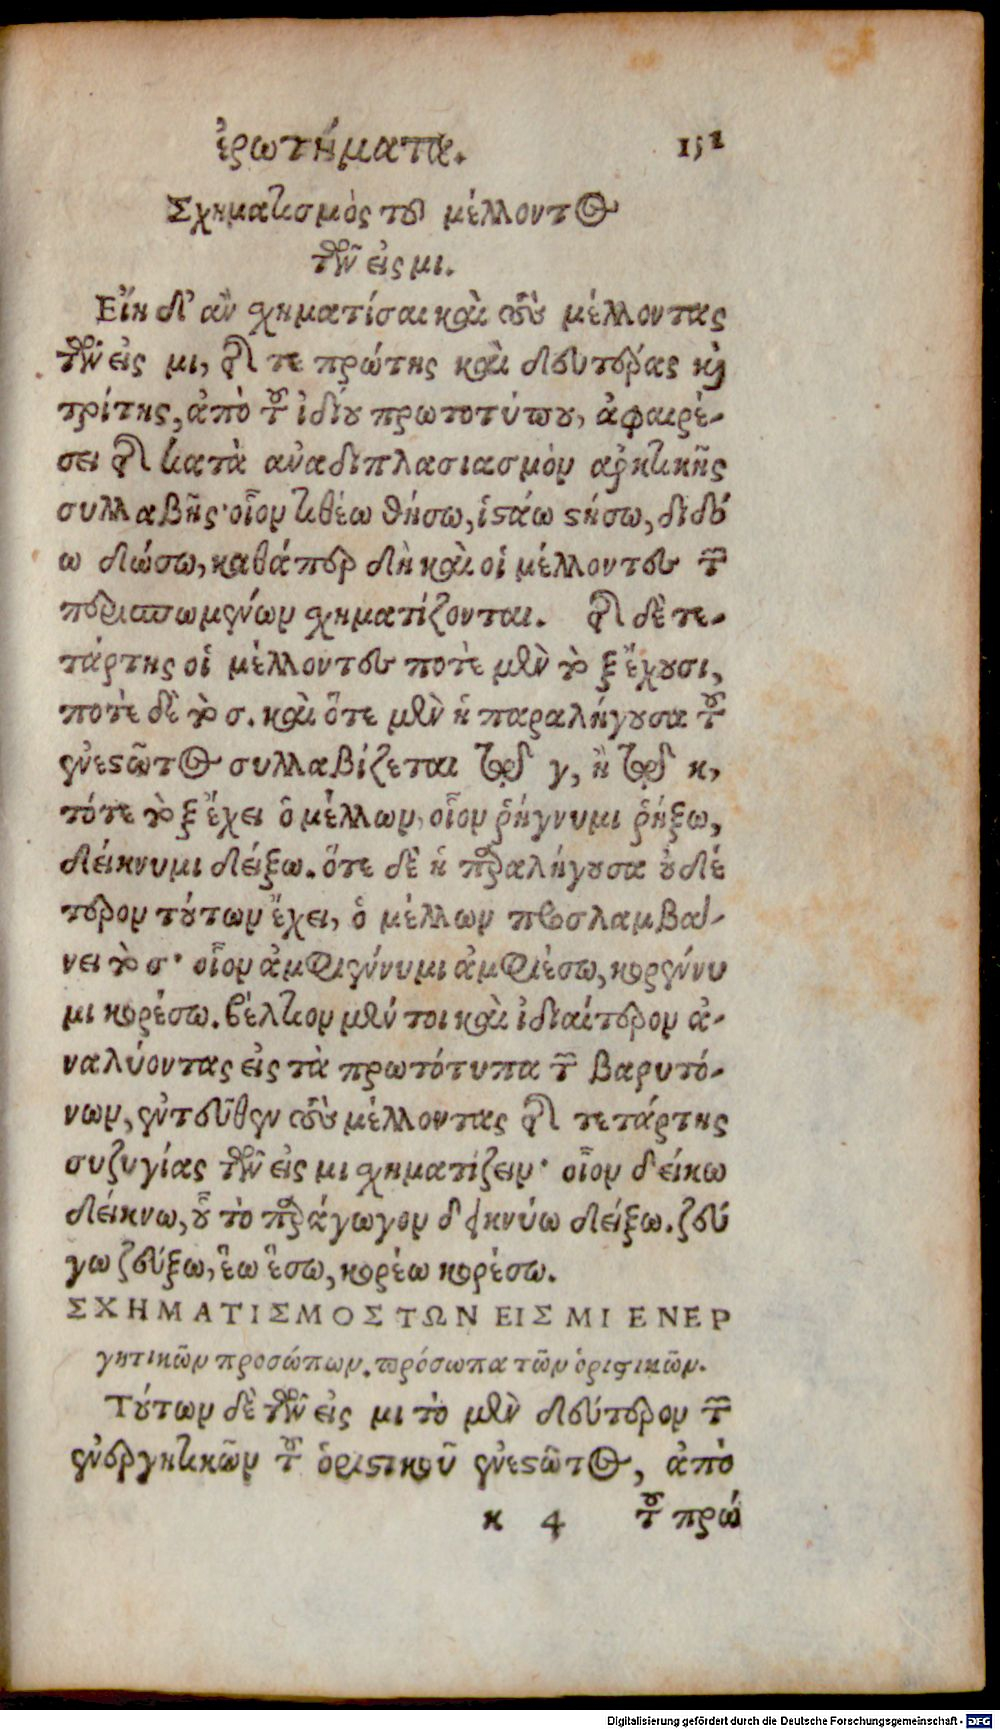 ἐρωτήματα. 152
Σχηματισμὸς τοῦ μέλλοντος
τῶν εἰς μι.
Εἴη δ' ἂν σχηματίσαι καὶ τοὺς μέλλοντας
τῶν εἰς μι, τῆς τε πρώτης καὶ δευτέρας καὶ
τρίτης, ἀπὸ τοῦ ἰδίου πρωτοτύπου, ἀφαιρέ-
σει τῆς κατὰ ἀναδιπλασιασμὸν ἀρκτικῆς
συλλαβῆς· οἷον τιθέω θήσω, ἱστάω στήσω, διδό
ω δώσω, καθάπερ δὴ καὶ οἱ μέλλοντες τῶν
περισπωμένων σχηματίζονται. τῆς δὲ τε-
τάρτης οἱ μέλλοντες ποτὲ μὲν τὸ ξ ἔχουσι,
ποτὲ δὲ τὸ σ. καὶ ὅτε μὲν ἡ παραλήγουσα τοῦ
ἐνεστῶτος συλλαβίζεται διὰ τοῦ γ, ἢ διὰ τοῦ κ,
τότε τὸ ξ ἔχει ὁ μέλλων, οἷον ῥήγνυμι ῥήξω,
δείκνυμι δείξω. ὅτε δὲ ἡ παραλήγουσα οὐδέ
τερον τούτων ἔχει, ὁ μέλλων προσλαμβά-
νει τὸ σ· οἷον ἀμφιέννυμι ἀμφιέσω, κορέννυ
μι κορέσω. βέλτιον μέν τοι καὶ ἰδιαίτερον ἀ-
ναλύοντας εἰς τὰ πρωτότυπα τῶν βαρυτό-
νων, ἐντεῦθεν τοὺς μέλλοντας τῆς τετάρτης
συζυγίας τῶν εἰς μι σχηματίζειν· οἷον δείκω
δείκνω, οὗ τὸ παράγωγον δεικνύω δείξω. ζεύ
γω ζεύξω, ἕω ἕσω, κορέω κορέσω.
ΣΧΗΜΑΤΙΣΜΟΣ ΤΩΝ ΕΙΣ ΜΙ ΕΝΕΡ
γητικῶν προσώπων. πρόσωπα τῶν ὁριστικῶν.
Τούτων δὲ τῶν εἰς μι τὸ μὲν δεύτερον τῶν
ἐνεργητικῶν τοῦ ὁριστικοῦ ἐνεστῶτος, ἀπὸ
κ 4 τοῦ πρώ
Digitalisierung gefördert durch die Deutsche Forschungsgemeinschaft - DFG